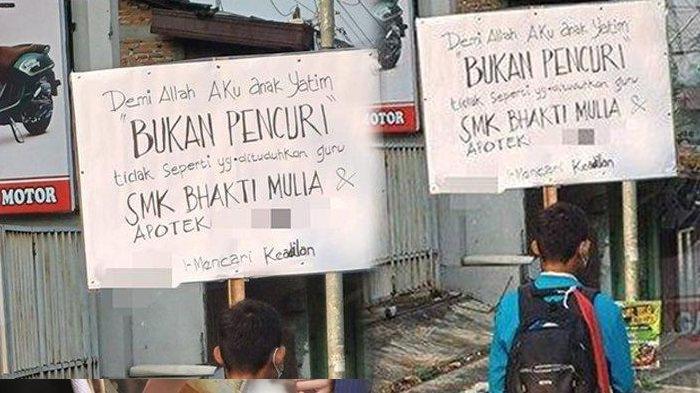 Demi Allah AKu anak Yatim
"BUKAN PENCURI"
tidak seperti yg dituduhkan guru
SMK BHAKTI MULIA &
APOTEK
Mencari Keadilan
MOTOR
Demi Allah AKu anak Yatim
"BUKAN PENCURI"
tidak seperti yg dituduhkan guru
SMK BHAKTI MULIA &
APOTEK
Mencari Keadilan